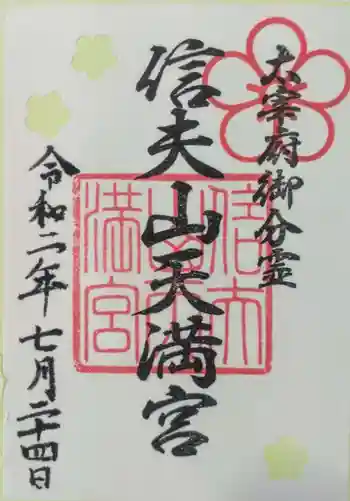 太宰府御分霊
信夫山天満宮
令和二年七月二十四日
信夫
山天
満宮